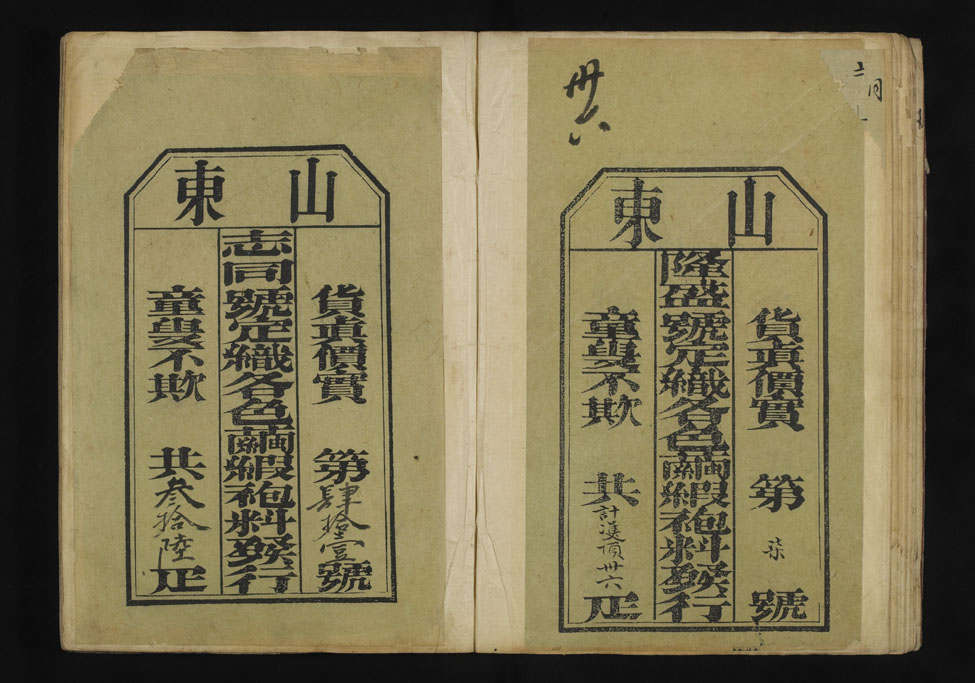 山東
貨真價實 第柒號
隆盛號定織各色繭緞袍料發行
童叟不欺 共計雙頂卅六疋
卅六
月
山東
貨真價實 第肆拾壹號
志同號定織各色繭緞袍料發行
童叟不欺 共叁拾陸疋